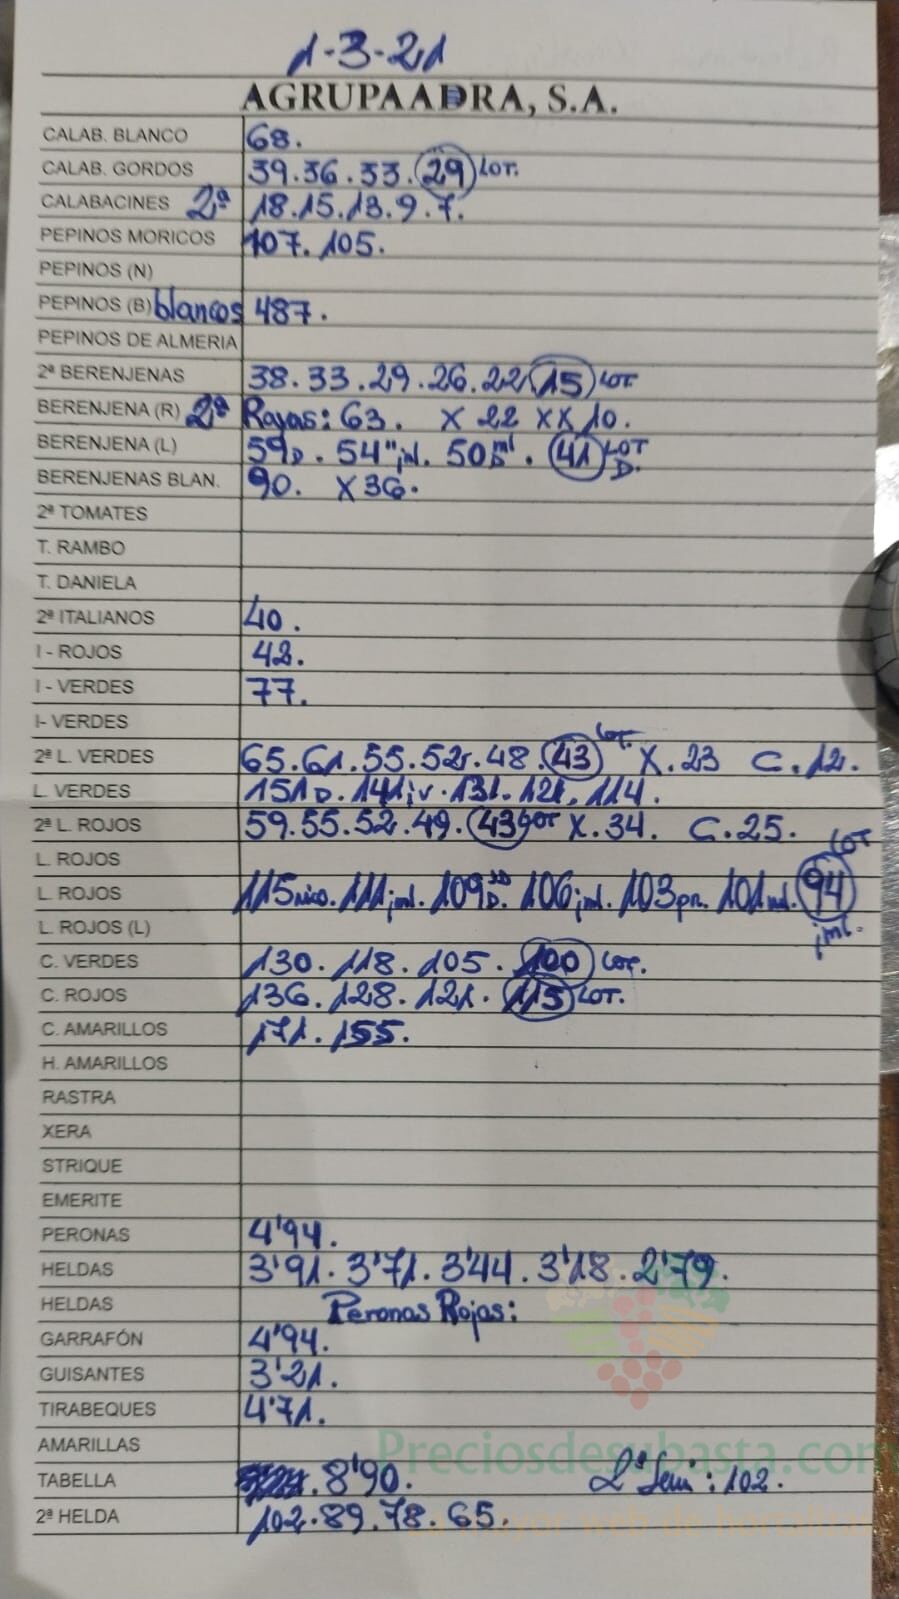 1-3-21
AGRUPAADRA, S.A.
CALAB. BLANCO 68.
CALAB. GORDOS 39.36.33.29 LOT.
CALABACINES 2ª 18.15.13.9.7.
PEPINOS MORICOS 107.105.
PEPINOS (N)
PEPINOS (B) blancos 487.
PEPINOS DE ALMERIA
2ª BERENJENAS 38.33.29.26.22 15 LOT
BERENJENA (R) 2ª Rayas: 63. X 22 XX 10.
BERENJENA (L) 59D. 54 inl. 50 D. 41 LOT D.
BERENJENAS BLAN. 90. X36.
2ª TOMATES
T. RAMBO
T. DANIELA
2ª ITALIANOS 40.
I - ROJOS 42.
I - VERDES 77.
I- VERDES
2ª L. VERDES 65.61.55.52.48.43 LOT. X.23 C.12.
L. VERDES 151D.141iv.131.121.114.
2ª L. ROJOS 59.55.52.49.43 LOT X.34. C.25.
L. ROJOS
L. ROJOS 115 nico.111 inl.109 D.106 inl.103 pr.101 nl.94 LOT inl.
L. ROJOS (L)
C. VERDES 130.118.105.100 LOT.
C. ROJOS 136.128.121.115 LOT.
C. AMARILLOS 171.155.
H. AMARILLOS
RASTRA
XERA
STRIQUE
EMERITE
PERONAS 4'94.
HELDAS 3'91.3'71.3'44.3'18.2'79.
HELDAS Peronas Rojas:
GARRAFÓN 4'94.
GUISANTES 3'21.
TIRABEQUES 4'71.
AMARILLAS
Preciosdesubasta.com
TABELLA .8'90. 2ª Semi: 102.
2ª HELDA 102.89.78.65.
mayor web de hortalizas